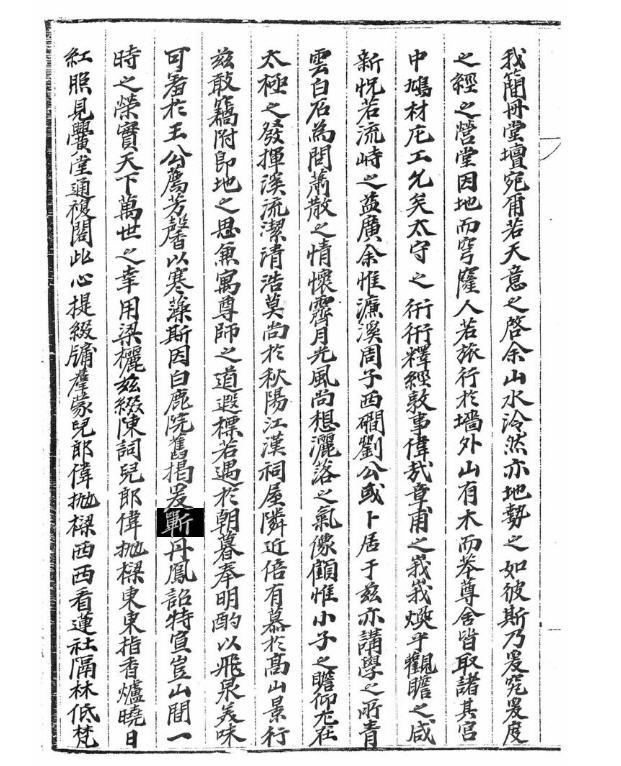 我簡冊堂壇宛爾若天意之啓余山水泠然亦地勢之如彼斯乃爰究爰度
之經之營堂因地而穹窿人若旅行於墻外山有木而桊尊舍皆取諸其宮
中鳩材庀工允矣太守之衎衎釋經敦事偉哉章甫之峩峩煥乎觀瞻之咸
新怳若流峙之益廣余惟濂溪周子西磵劉公或卜居于玆亦講學之所青
雲白石爲閒蕭散之情懷霽月光風尚想灑落之氣像顧惟小子之瞻仰尤在
太極之發揮溪流潔清浩莫尚於秋陽江漢祠屋隣近倍有慕於高山景行
玆敢竊附卽地之思兼寓尊師之道遐標若遇於朝暮奉明酌以飛泉羙味
可羞於王公薦芳馨以寒藻斯因白鹿院舊揭爰斲丹鳳詔特宣豈山間一
時之榮實天下萬世之幸用梁欐玆綴陳詞兒郞偉抛樑東東指香爐曉日
紅照見黌堂通複閣此心提綴牖羣蒙兒郞偉抛樑西西看蓮社隔林低梵